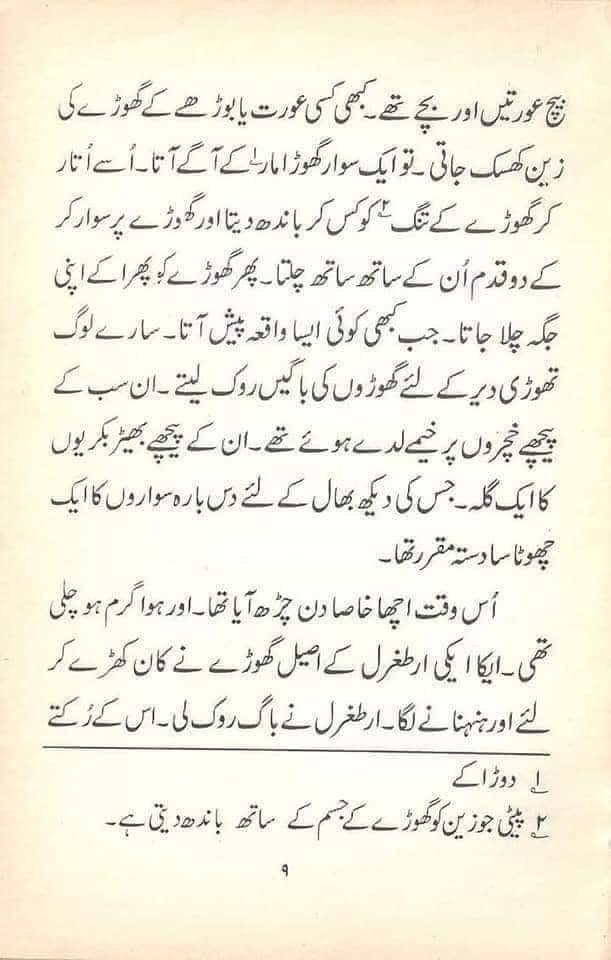 بیچ عورتیں اور بچے تھے۔ کبھی کسی عورت یا بوڑھے کے گھوڑے کی
زین کھسک جاتی۔ تو ایک سوار گھوڑا مار۱ کے آگے آتا۔ اُسے اُتار
کر گھوڑے کے تنگ۲ کو کس کر باندھ دیتا اور گھوڑے پر سوار کر
کے دو قدم اُن کے ساتھ ساتھ چلتا۔ پھر گھوڑے کو پھرا کے اپنی
جگہ چلا جاتا۔ جب کبھی کوئی ایسا واقعہ پیش آتا۔ سارے لوگ
تھوڑی دیر کے لئے گھوڑوں کی باگیں روک لیتے۔ ان سب کے
پیچھے خچروں پر خیمے لدے ہوئے تھے۔ ان کے پیچھے بھیڑ بکریوں
کا ایک گلہ۔ جس کی دیکھ بھال کے لئے دس بارہ سواروں کا ایک
چھوٹا سا دستہ مقرر تھا۔
اُس وقت اچھا خاصا دن چڑھ آیا تھا۔ اور ہوا گرم ہو چلی
تھی۔ ایکا ایکی ارطغرل کے اصیل گھوڑے نے کان کھڑے کر
لئے اور ہنہنانے لگا۔ ارطغرل نے باگ روک لی۔ اس کے رُکتے
۱ دوڑا کے
۲ پیٹی جو زین کو گھوڑے کے جسم کے ساتھ باندھ دیتی ہے۔
۹